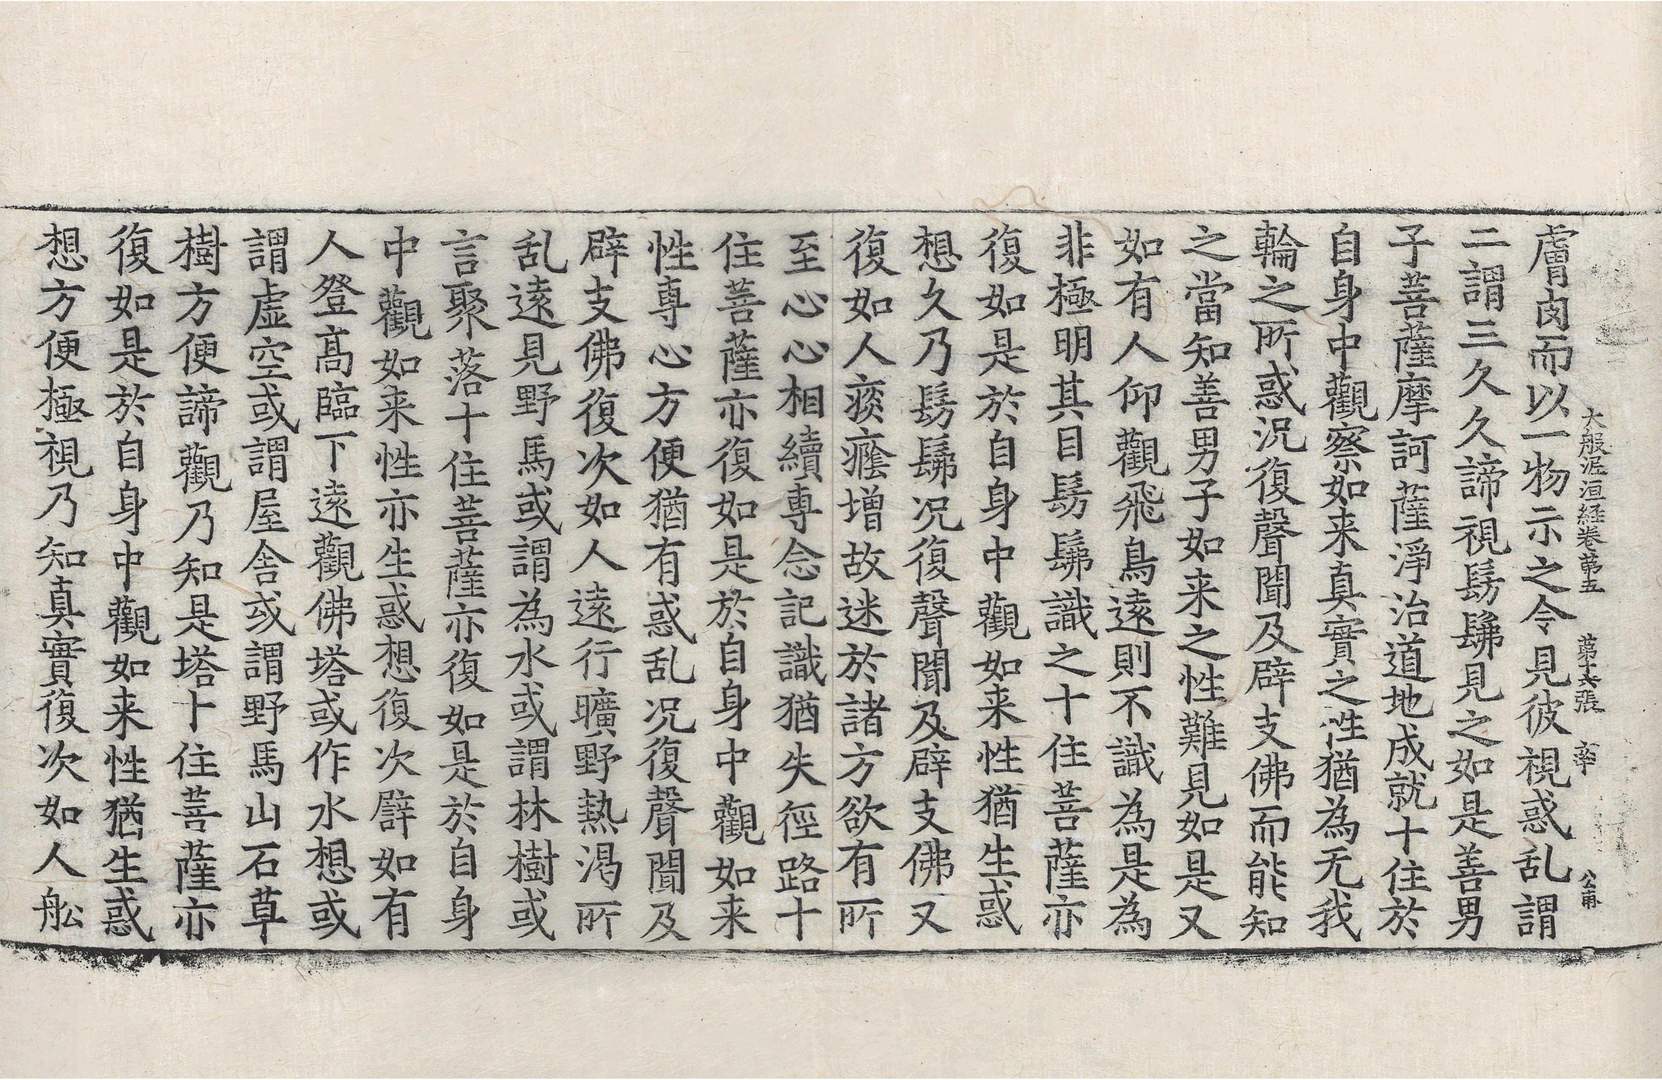 大般泥洹経卷第五 第十六張 率 公甫
膚肉而以一物示之令見彼視惑乱謂
二謂三久久諦視髣髴見之如是善男
子菩薩摩訶薩淨治道地成就十住於
自身中觀察如来真實之性猶為无我
輪之所惑況復聲聞及辟支佛而能知
之當知善男子如来之性難見如是又
如有人仰觀飛鳥遠則不識為是為
非極明其目髣髴識之十住菩薩亦
復如是於自身中觀如来性猶生惑
想久乃髣髴況復聲聞及辟支佛又
復如人痰癊增故迷於諸方欲有所
至心心相續專念記識猶失徑路十
住菩薩亦復如是於自身中觀如来
性專心方便猶有惑乱況復聲聞及
辟支佛復次如人遠行曠野熱渴所
乱遠見野馬或謂為水或謂林樹或
言聚落十住菩薩亦復如是於自身
中觀如来性亦生惑想復次譬如有
人登高臨下遠觀佛塔或作水想或
謂虛空或謂屋舍或謂野馬山石草
樹方便諦觀乃知是塔十住菩薩亦
復如是於自身中觀如来性猶生惑
想方便極視乃知真實復次如人舩